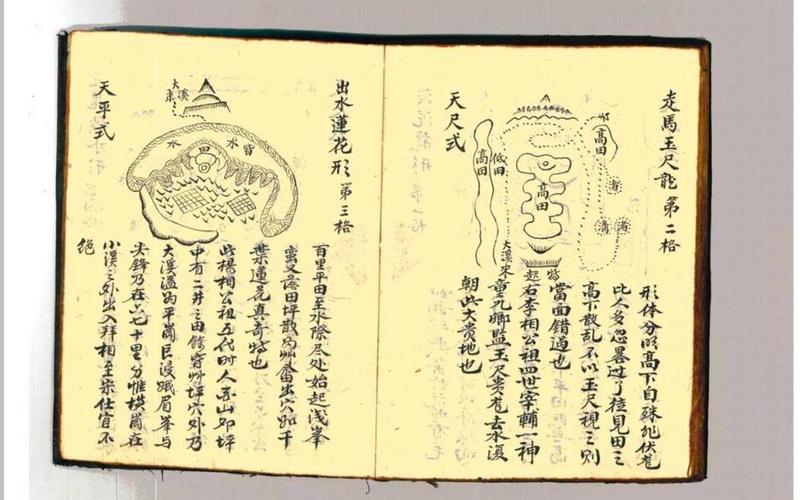 走馬玉尺龍 第二格
形体分明高下自殊非伏芻
比人多忽畧过了徃見田三
高下散乱不以玉尺視之則
當面錯過也
右李相公祖四世宰輔一神
童九卿監玉尺貴
去水浚
朝此大貴地也
天尺式
高田
低田
高田
高田
大溪水
特起
出水蓮花形 第三格
百里平田至水際尽处始起浅峯
又落田坪散为
畬出穴如千
葉蓮花真奇特也
此楊相公祖五代时人
山卯坪
中有二井三田
坪穴外乃
大溪溢为平崗巨浸蛾眉峯与
尖鋒乃在六七十里分惟横崗在
小溪之外出入拜相至宋仕宦不
絶
天平式
大溪
水
水
皆